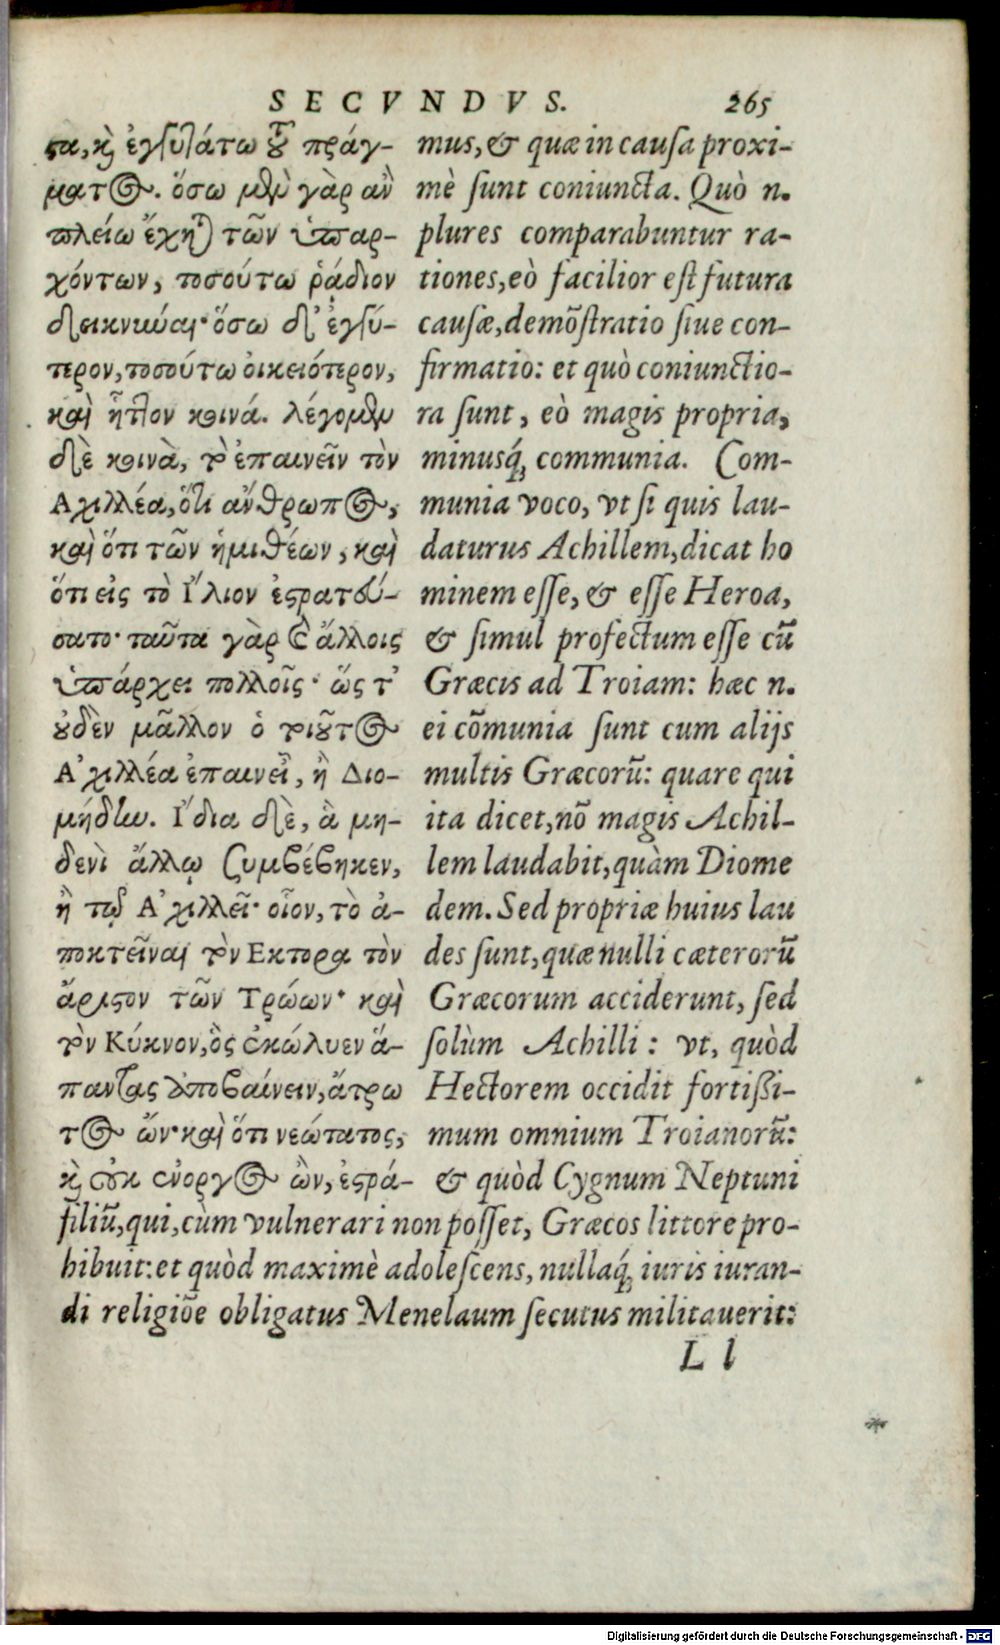 SECVNDVS. 265
ϛα, κὶ ἐγγυτάτω τοῦ πράγ-
ματος. ὅσω μὲν γὰρ ἂν
πλείω ἔχηται τῶν ὑπαρ-
χόντων, τοσούτω ῥάδιον
δεικνύναι· ὅσω δ' ἐγγύ-
τερον, τοσούτω οἰκειότερον,
καὶ ἧττον κοινά. λέγομεν
δὲ κοινὰ, τὸ ἐπαινεῖν τὸν
Αχιλλέα, ὅτι ἄνθρωπος,
καὶ ὅτι τῶν ἡμιθέων, καὶ
ὅτι εἰς τὸ Ἴλιον ἐϛρατεύ-
σατο· ταῦτα γὰρ καὶ ἄλλοις
ὑπάρχει πολλοῖς· ὥς τ'
οὐδὲν μᾶλλον ὁ τοιοῦτος
Ἀχιλλέα ἐπαινεῖ, ἢ Διο-
μήδην. Ἴδια δὲ, ἃ μη-
δενὶ ἄλλῳ συμβέβηκεν,
ἢ τῷ Ἀχιλλεῖ· οἷον, τὸ ἀ-
ποκτεῖναι τὸν Εκτορα τὸν
ἄριϛον τῶν Τρώων· καὶ
τὸν Κύκνον, ὃς ἐκώλυεν ἅ-
παντας ἀποβαίνειν, ἄτρω
τος ὤν· καὶ ὅτι νεώτατος,
κὶ οὐκ ἔνορκος ὢν, ἐϛρά-
mus, & quæ in causa proxi-
mè sunt coniuncta. Quò n.
plures comparabuntur ra-
tiones, eò facilior est futura
causæ, demõstratio siue con-
firmatio: et quò coniunctio-
ra sunt, eò magis propria,
minusq́; communia. Com-
munia voco, vt si quis lau-
daturus Achillem, dicat ho
minem esse, & esse Heroa,
& simul profectum esse cũ
Græcis ad Troiam: hæc n.
ei cõmunia sunt cum alijs
multis Græcorũ: quare qui
ita dicet, nõ magis Achil-
lem laudabit, quàm Diome
dem. Sed propriæ huius lau
des sunt, quæ nulli cæterorũ
Græcorum acciderunt, sed
solùm Achilli: vt, quòd
Hectorem occidit fortißi-
mum omnium Troianorũ:
& quòd Cygnum Neptuni
filiũ, qui, cùm vulnerari non posset, Græcos littore pro-
hibuit: et quòd maximè adolescens, nullaq́; iuris iuran-
di religiõe obligatus Menelaum secutus militauerit:
Ll
Digitalisierung gefördert durch die Deutsche Forschungsgemeinschaft - DFG